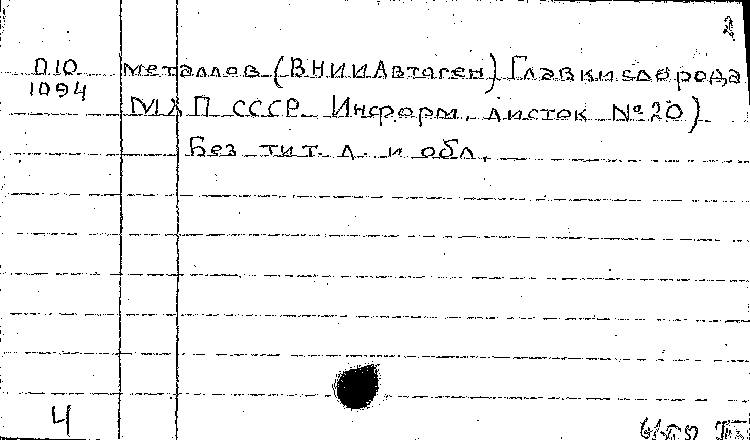 2
П10 металлов (ВНИИАвтоген) Главкислорода
1094 МХП СССР. Информ. листок № 20)
Без тит. л. и обл.
4